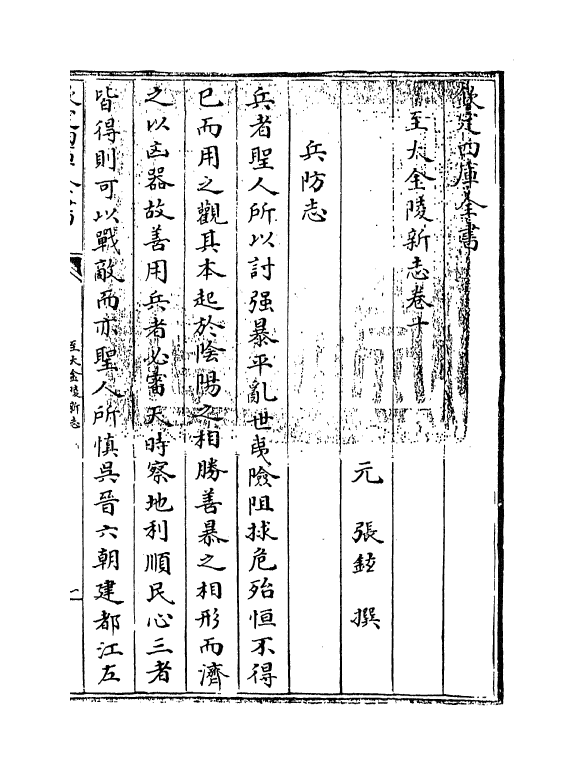 欽定四庫全書
至大金陵新志卷十
元 張鉉 撰
兵防志
兵者聖人所以討强暴平亂世夷險阻捄危殆恒不得
已而用之觀其本起於陰陽之相勝善暴之相形而濟
之以凶器故善用兵者必審天時察地利順民心三者
皆得則可以戰敵而亦聖人所慎吳晉六朝建都江左
欽定四庫全書
至大金陵新志
一